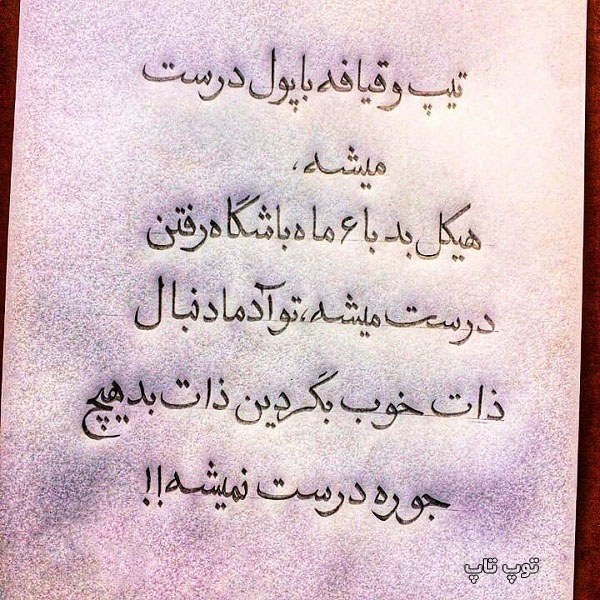 تیپ و قیافه با پول درست
میشه،
هیکل بد با ۶ ماه باشگاه رفتن
درست میشه، تو آدما دنبال
ذات خوب بگردین ذات بد هیچ
جوره درست نمیشه!!
توپ تاپ